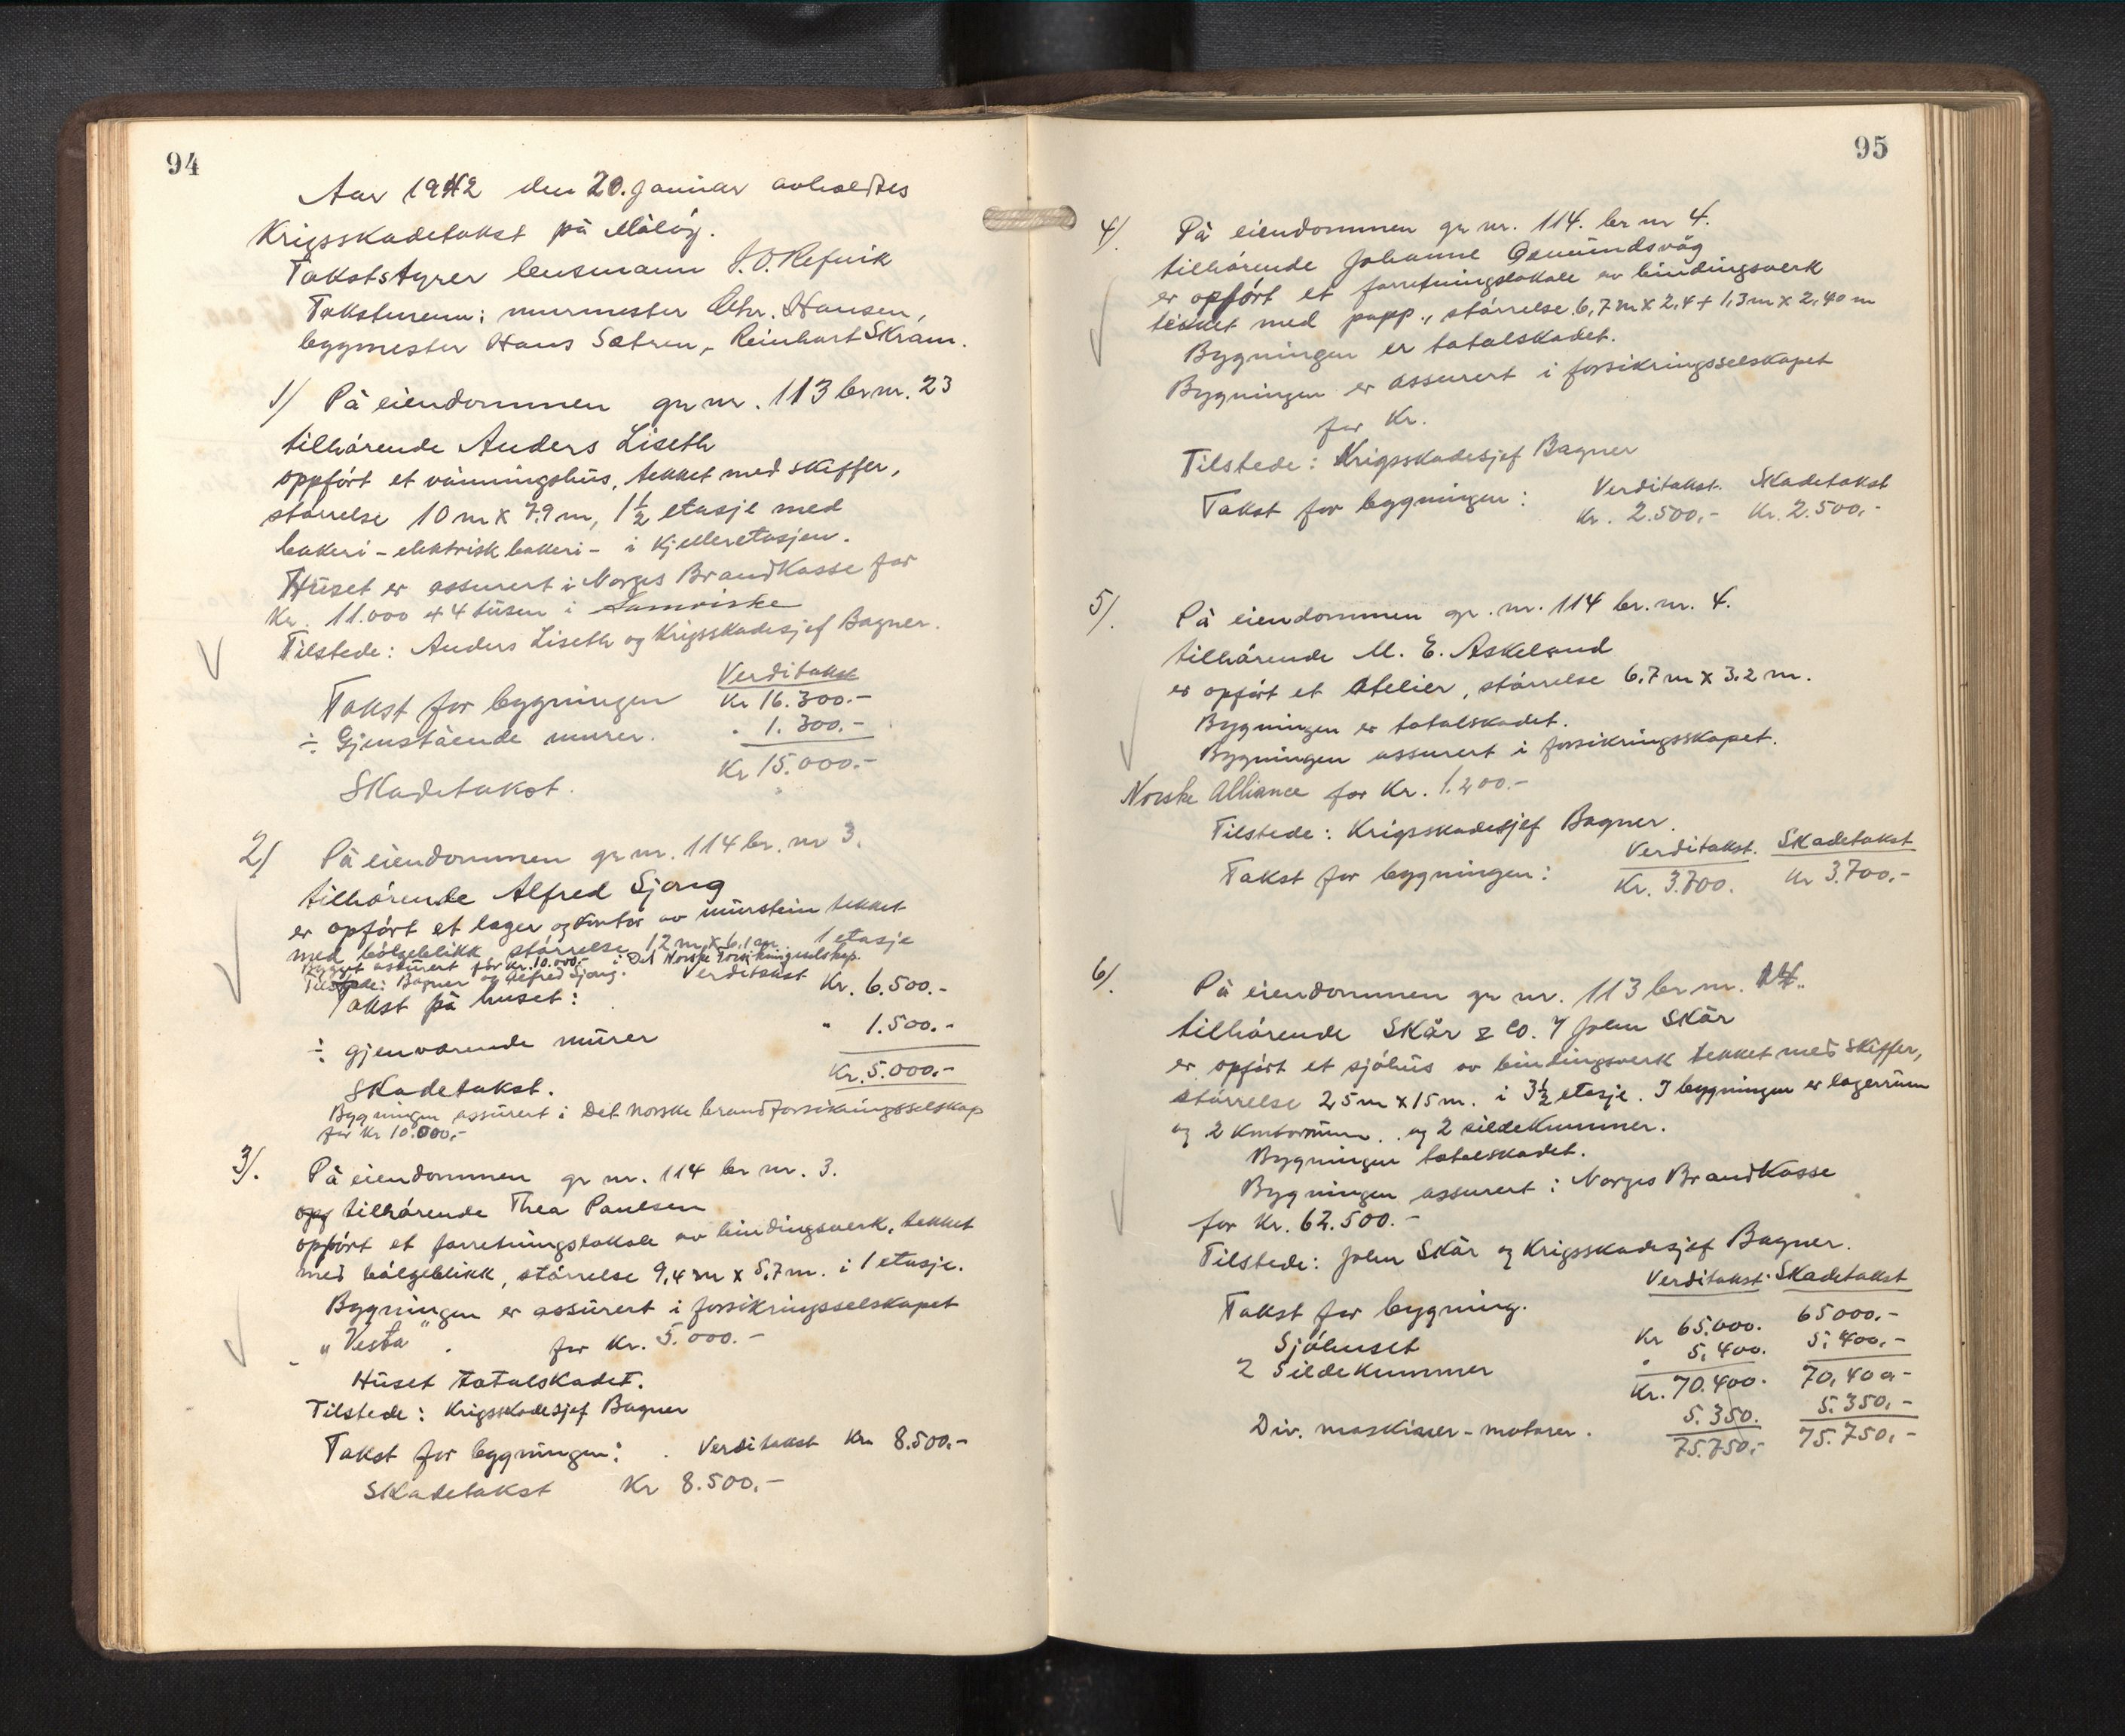 94
Aar 1942 den 20. januar avholdtes
Krigsskadetakst på Måløy.
Takststyrer lensmann J. O. Refvik
Takstmenn: murmester Chr. Hansen,
byggmester Hans Sætren, Reinhart Skram.
1/ På eiendommen gr nr. 113 br nr. 23
tilhørende Anders Liseth
oppført et våningshus, tekket med skiffer,
størrelse 10 m x 7.9 m, 1½ etasje med
bakeri - elektrisk bakeri - i kjelleretasjen.
Huset er assurert i Norges Brandkasse for
Kr. 11.000 + 4 tusen i Samvirke
Tilstede: Anders Liseth og Krigsskadesjef Bagner.
Verditakst
Takst for bygningen Kr 16.300.-
÷ Gjenstående murer. " 1.300.-
Skadetakst. Kr 15.000.-
2/ På eiendommen gr nr. 114 br. nr 3.
tilhørende Alfred Sjong
er opført et lager og kontor av murstein tekket
med bølgeblikk størrelse 12 m x 6,1 m. 1 etasje
Bygget assurert for Kr. 10.000.- i Det Norske Forsikringselskap.
Tilstede: Bagner og Alfred Sjong. Verditakst
Takst på huset: Kr. 6.500.-
÷ gjenværende murer " 1.500.-
Skadetakst. Kr. 5.000.-
Bygningen assurert i Det norske brandforsikringsselskap
for Kr 10.000,-
3/. På eiendommen gr nr. 114 br nr. 3.
opf tilhørende Thea Paulsen
opført et forretningslokale av bindingsverk, tekket
med bølgeblikk, størrelse 9,4 m x 5,7 m. i 1 etasje.
Bygningen er assurert i forsikringsselskapet
"Vesta" for Kr. 5.000.-
Huset totalskadet.
Tilstede: Krigsskadesjef Bagner
Takst for bygningen: Verditakst Kr. 8.500,-
Skadetakst Kr 8.500,-
95
4/. På eiendommen gr nr. 114. br nr 4.
tilhørende Johanne Osmundsvåg
er opført et forretningslokale av bindingsverk
tekket med papp., størrelse 6,7 m x 2,4 + 1,3 m x 2,40 m
Bygningen er totalskadet.
Bygningen er assurert i forsikringsselskapet
for Kr.
Tilstede: Krigsskadesjef Bagner
Verditakst. Skadetakst
Takst for bygningen: Kr. 2.500,- Kr. 2.500,-
5/. På eiendommen gr. nr. 114 br. nr. 4.
tilhørende M. E. Askeland
er opført et Atelier, størrelse 6,7 m x 3.2 m.
Bygningen er totalskadet.
Bygningen assurert i forsikringsskapet.
Norske Alliance for Kr. 1.200.-
Tilstede: Krigsskadesjef Bagner.
Verditakst. Skadetakst
Takst for bygningen: Kr. 3.700. Kr 3.700,-
6/. På eiendommen gr nr. 113 br nr.
tilhørende Skår & Co. v/ John Skår
er opført et sjøhus av bindingsverk tekket med skiffer,
størrelse 25 m x 15 m. i 3½ etasje. I bygningen er lagerrum
og 2 kontorrum. og 2 sildekummer.
Bygningen totalskadet.
Bygningen assurert i Norges Brandkasse
for Kr. 62.500.-
Tilstede: John Skår og Krigsskadesjef Bagner.
Verditakst. Skadetakst
Takst for bygning.
Sjøhuset Kr 65.000. 65000.-
2 Sildekummer " 5.400. 5.400,-
Kr. 70.400. 70.400-
Div. maskiner - motorer. 5.350. 5.350,-
75.750,- 75.750,-